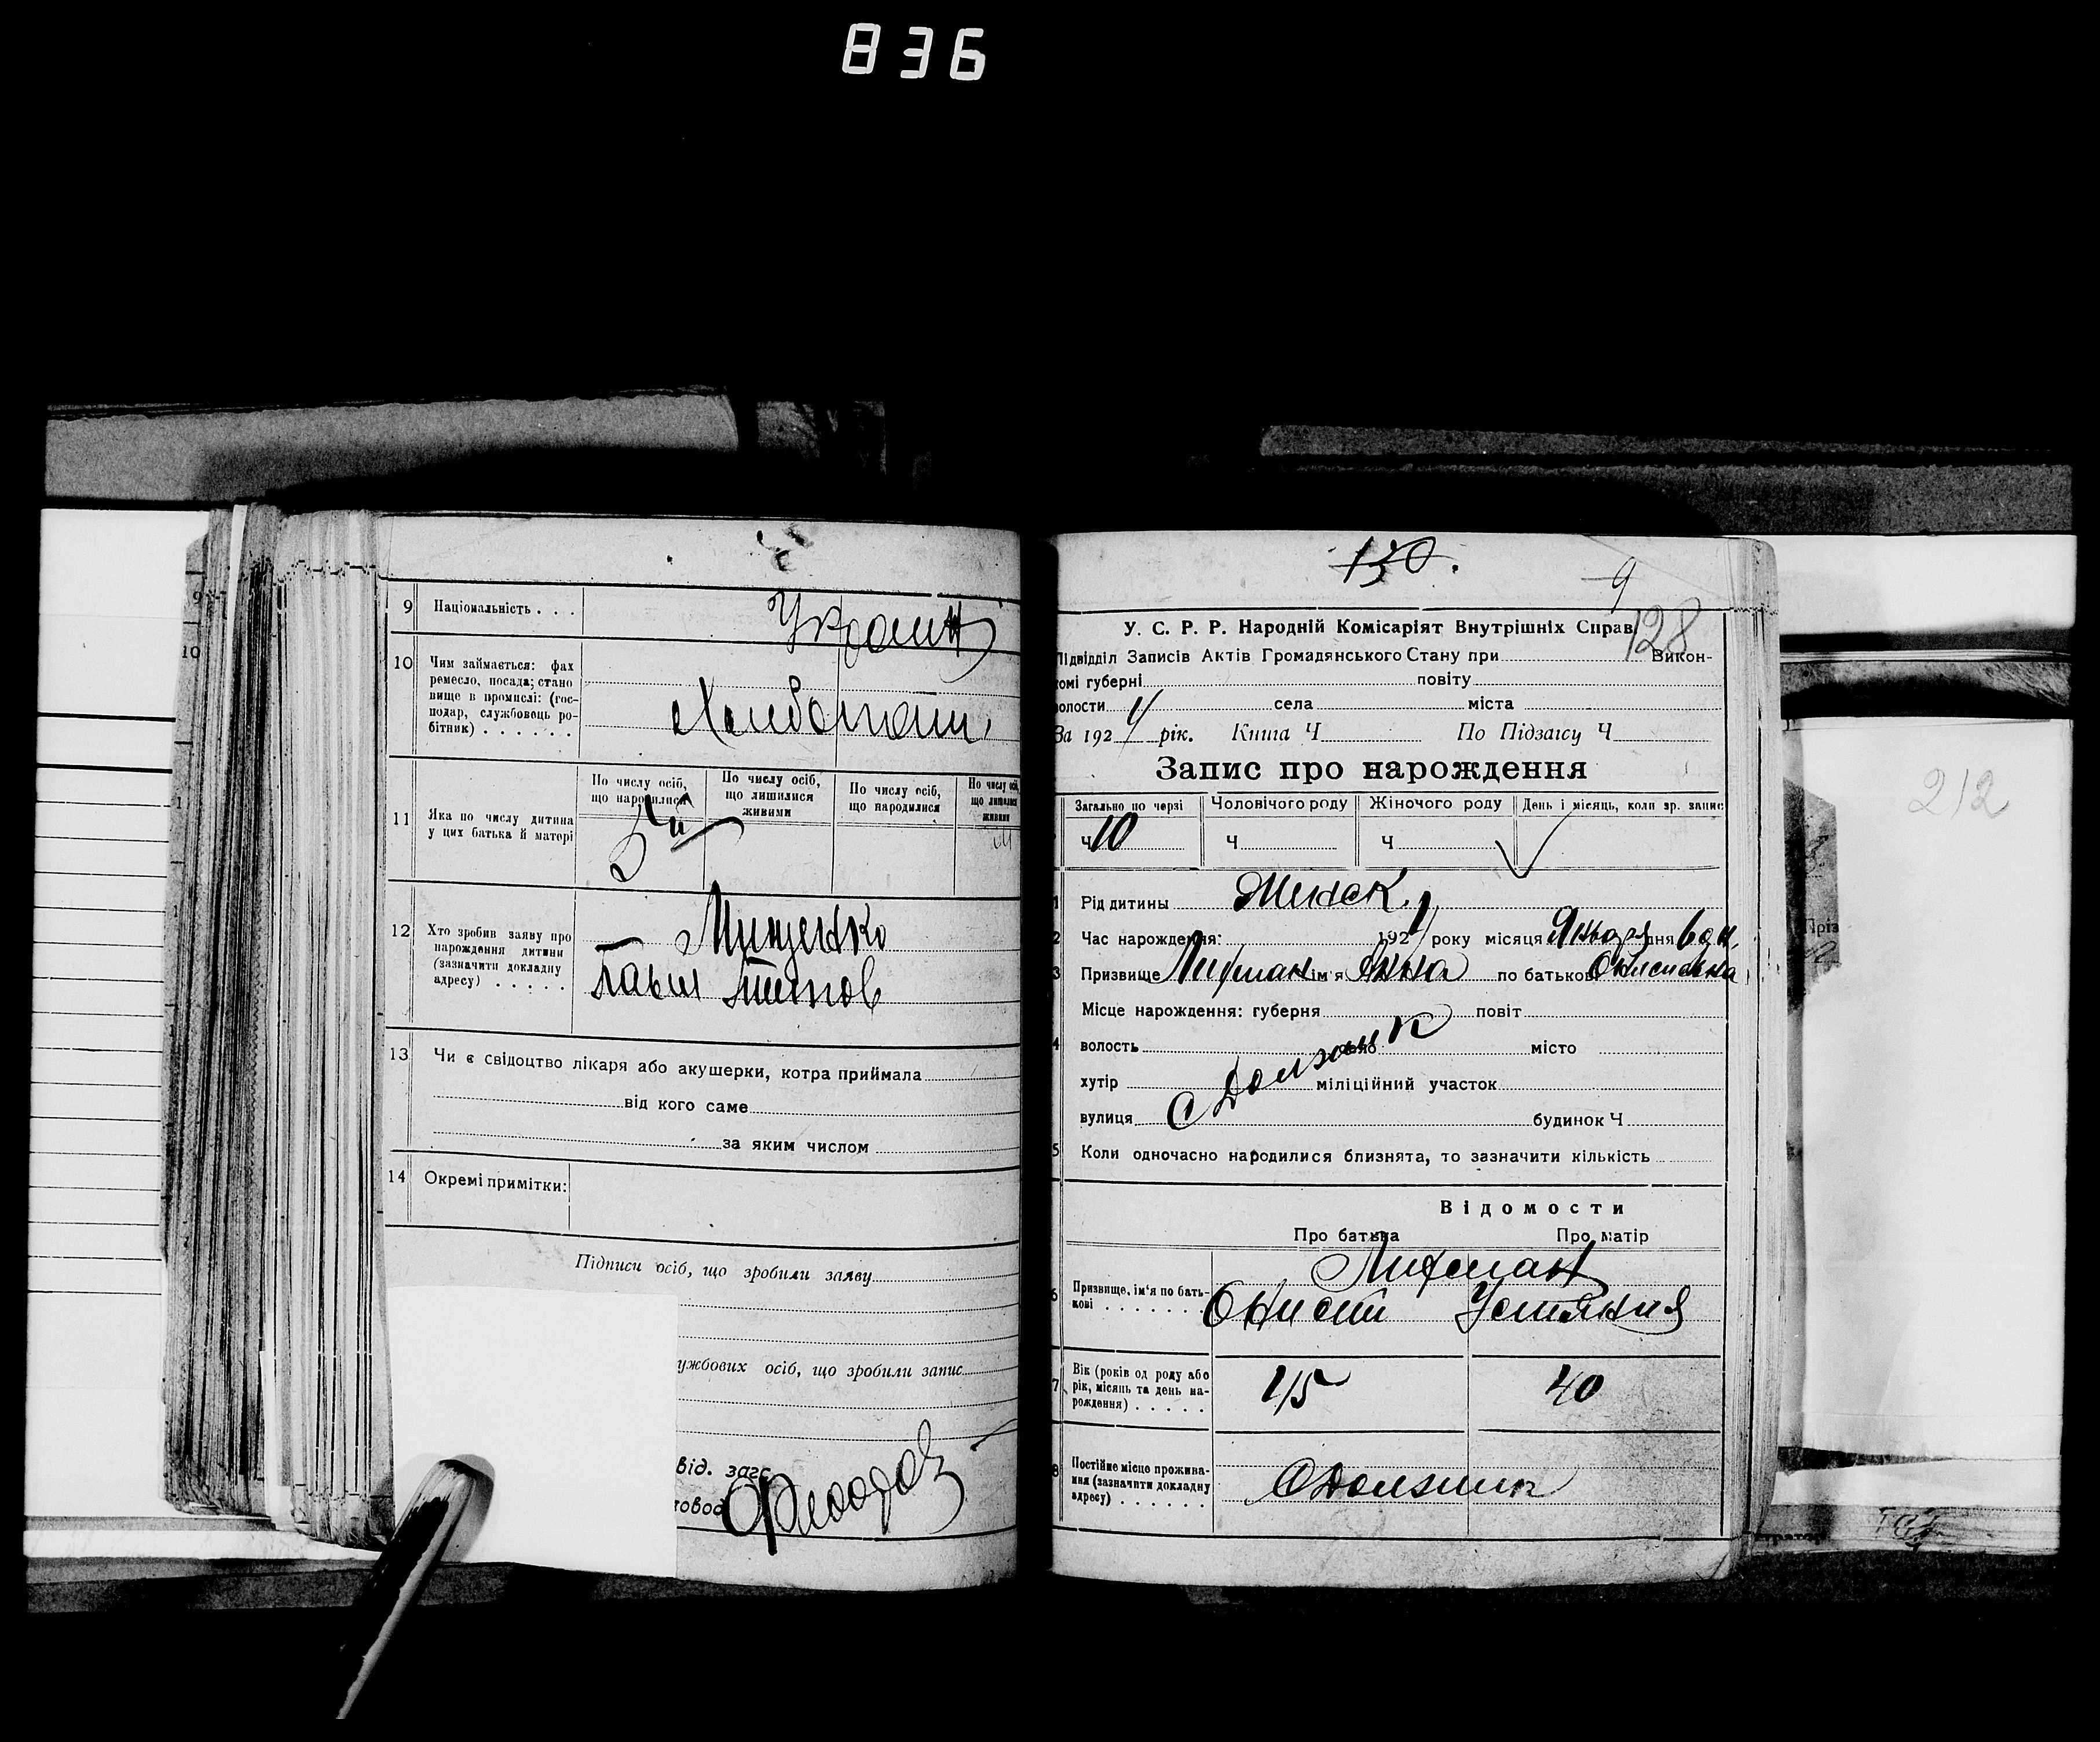 836
9 Національність . . .
Украин
10 Чим займається: фах
ремесло, посада; стано
вище в промислі: (гос-
подар, службовець ро-
бітник) . . . . . .
Хлебопаш.
По числу осіб, що народилися
По числу осіб, що лишилися живими
По числу осіб, що народилися
11 Яка по числу дитина
у цих батька й матері
5й
12 Хто зробив заяву про
нарождення дитини
(зазначити докладну
адресу) . . . . .
Мищенко
13 Чи є свідоцтво лікаря або акушерки, котра приймала
від кого саме
за яким числом
14 Окремі примітки:
Підписи осіб, що зробили заяву
ужбових осіб, що зробили запис
від. загс
товод
130.
9
128
У. С. Р. Р. Народній Комісаріят Внутрішніх Справ.
Підвідділ Записів Актів Громадянського Стану при Викон-
комі губерні повіту
волости села міста
За 192 рік. Книга Ч По Підзагсу Ч
Запис про нарождення
Загально по черзі Чоловічого роду Жіночого роду День і місяць, коли зр. запис
Ч 10 Ч Ч
1 Рід дитины Женск.
2 Час нарождення: 192 року місяця Января дня 6
3 Призвище Лифман ім'я Анна по батькові
Місце нарождення: губерня повіт
4 волость село місто
хутір міліційний участок
С Должик
вулиця будинок Ч
5 Коли одночасно народилися близнята, то зазначити кількість
Відомости
Про батька Про матір
Лифман
6 Призвище, ім'я по бать-
кові . . . . . . .
Онисий Устиния
7 Вік (років од роду або
рік, місяць та день на-
рождення) . . . . .
45 40
8 Постійне місце прожива-
ння (зазначити докладну
адресу) . . . . . .
С Должик
212